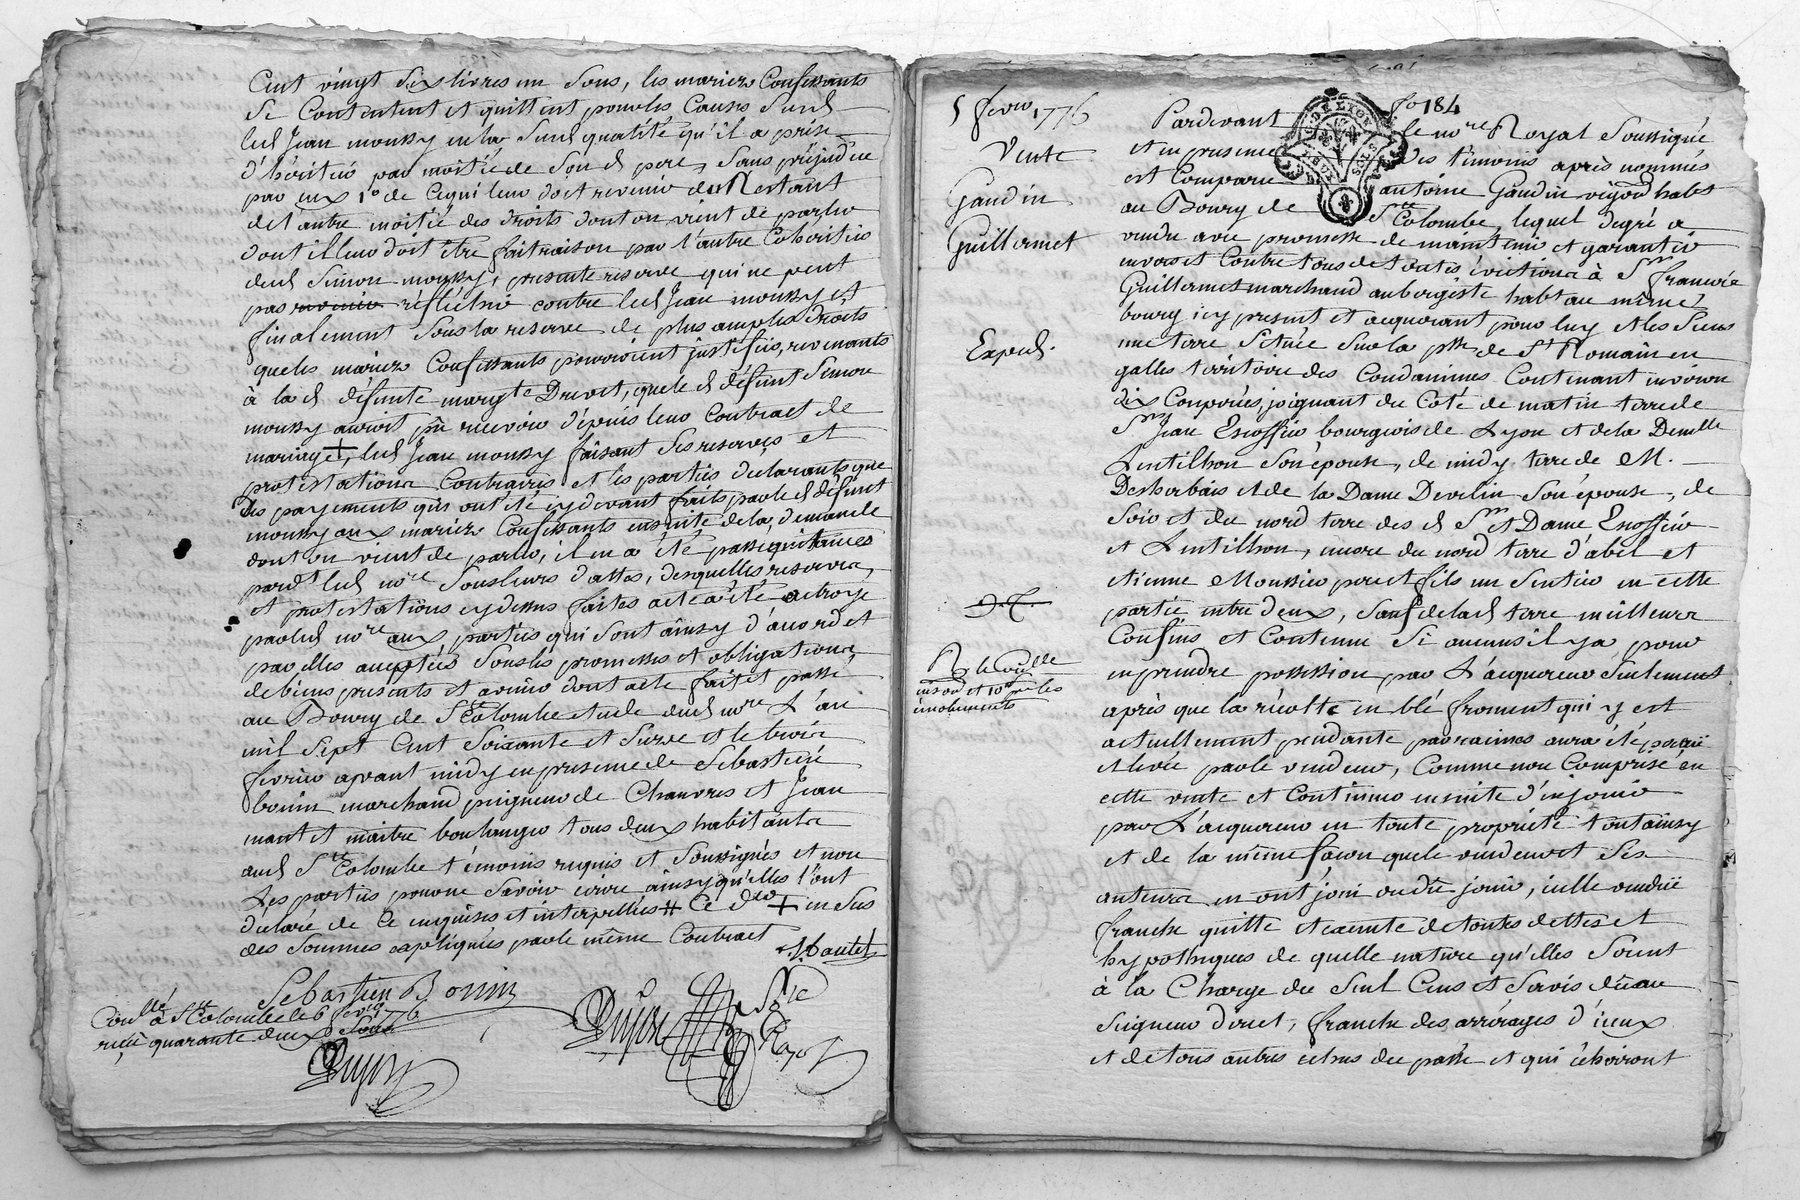 Cent vingt six livres un sous, les mariez Confessants
se Contentent et quittent pour les Causes susd
led Jean moussy en la susd qualité qu'il a prise
d'héritié par moitié de son d pere, sans préjudice
par eux 1° de Ce qui leur doit revenir du Restant
de l'autre moitié des droits dont on vient de parler
dont il leur doit être fait raison par l'autre Cohéritié
dud Simon moussy, presente reserve qui ne peut
pas réfléchir contre led Jean moussy et
finalement sous la reserve de plus amples droits
que les mariez Confessants pourroient justifier, revenants
à la d défunte margte Drevet, que le d défunt Simon
moussy auroit pu recevoir depuis leur Contract de
mariage +, led Jean moussy faisant ses reserves et
protestations Contraires et les parties declarants que
les payements qui ont été cy devant faits par le d défunt
moussy aux mariez Confessants ensuite de la demande
dont on vient de parler, il en a été passé quittances
pardt led nore sous leurs dattes, desquelles reserves
et protestations cy dessus faites acte a été octroyé
par led nore aux parties qui sont ainsy d'accord et
par elles acceptées sous les promesses et obligations
de biens presents et avenir dont acte fait et passé
au Bourg de Ste Colombe etude dud nore L'an
mil sept Cent soixante et seize et le trois
fevrier avant midy en presence de Sébastien
bonin marchand peigneur de Chanvres et Jean
mantet maitre boulanger tous deux habitants
aud Ste Colombe témoins requis et soussignés et non
Les parties pour ne savoir écrire ainsy qu'elles l'ont
déclaré de Ce enquises et interpellées # Ce d + en sus
des sommes expliquées par le même Contract
Mantet
Sebastien Bonin
Conllé à Ste Colombe le 6 fevr 1776
reçu quarante deux sous
Dujon
Dujon
Nre Royal
5 fevrier 1776
Vente
Gaudin
Guillermet
Exped.
R le Conlle
inson et 10e les
émoluments
fo 184
Pardevant le nore Royal soussigné
et en presence des témoins après nommés
est Comparu antoine Gaudin vigon habt
au Bourg de Ste Colombe, lequel de gré a
vendu avec promesse de maintenir et garantir
envers et Contre tous de toutes évictions à Sr francois
Guillermet marchand aubergiste habt au même
bourg icy present et acquerant pour luy et les siens
une terre située sur la psse de St Romain en
galles territoire des Condamines Contenant environ
dix Couperées, joignant du Coté de matin terre de
Sr Jean Enoffier bourgeois de Lyon et de la Demelle
Lentillon son épouse, de midy terre de M.
Desherbais et de la Dame Devilin son épouse, de
soir et du nord terre des d Sr et Dame Enoffier
et Lentillon, encore du nord terre d'abel et
etienne Moussier pere et fils un sentier en cette
partie entre deux, sauf de lad terre meilleurs
Confins et Contenue si aucuns il y a, pour
en prendre possession par L'acquereur seulement
après que la récolte en blé froment qui y est
actuellement pendante par racines aura été perçue
et levée par le vendeur, Comme non Comprise en
cette vente et Continuer ensuite d'en jouir
par L'acquereur en toute propriété tout ainsy
et de la même façon que le vendeur et ses
auteurs en ont joui ou dû jouir, icelle vendüe
franche quitte et exemte de toutes dettes et
hypothéques de quelle nature qu'elles soient
à la Charge du seul Cens et servis dû au
seigneur direct, franche des arrérages d'iceux
et de tous autres échus du passé et qui échoiront